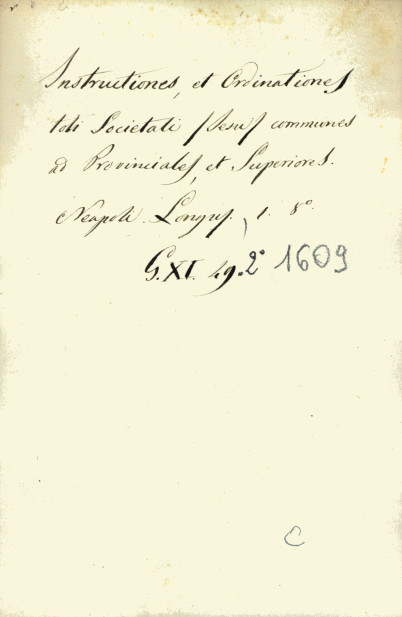 Instructiones, et Ordinationes
toti Societati /Jesu/ communes
ad Provinciales, et Superiores.
Neapoli. Longus. 1. 8°.
G.XI. 49.2° 1609
C